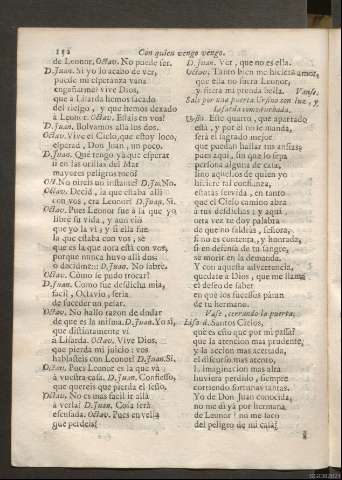 152
Con quien vengo vengo.
de Leonor. Octav. No puede ser.
D. Juan. Si yo lo acabo de ver,
puede mi esperança vana
engañarme? vive Dios,
que à Lisarda hemos sacado
del riesgo, y que hemos dexado
à Leonor. Octav. Estais en vos?
D. Juan. Bolvamos allà los dos.
Octav. Vive el Cielo, que estoy loco,
esperad, Don Juan, un poco.
D. Juan. Què tengo yà que esperar
si en las orillas del Mar
mayores peligros toco?
Oct. No mireis un instante? D. Ju. No.
Octav. Decid, la que estaba alli
con vos, era Leonor? D. Juan. Si.
Octav. Pues Leonor fue à la que yo
libré su vida, y aun vos
que yo la vi, y si ella fue
la que estaba con vos, sè
que es la que aora està con vos,
porque nunca huvo alli dos,
o decidme: D. Juan. No habrè.
Octav. Còmo se pudo trocar?
D. Juan. Como fue desdicha mia,
facil, Octavio, seria
de suceder un pesar.
Octav. No hallo razon de dudar
de que es la misma. D. Juan. Yo sì,
que distintamente vi
à Lisarda. Octav. Vive Dios,
que pierda mi juicio: vos
hablasteis con Leonor? D. Juan. Si.
Octav. Pues Leonor es la que và
à vuestra casa. D. Juan. Confiesso,
que quereis que pierda el seso.
Octav. No es mas facil ir allà
à verla? D. Juan. Cosa serà
escusada. Octav. Pues en vella
què perdeis?
D. Juan. Ver, que no es ella.
Octav. Tanto bien me hiciera amor,
que ella no fuera Leonor,
y fuera mi prenda bella. Vanse.
Sale por una puerta Ursino con luz, y
Lisarda como turbada.
Ursin. Este quarto, que apartado
està, y por el no le manda,
serà el sagrado mejor
que puedan hallar tus ansias;
pues aqui, sin que lo sepa
persona alguna de casa,
sino aquellos de quien yo
hiciere tal confiança,
estaràs servida, en tanto
que el Cielo camino abra
à tus desdichas; y aqui
otra vez te doy palabra
de que no saldràs, señora,
si no es contenta, y honrada,
si en defensa de tu sangre,
se morir en la demanda.
Y con aquesta advertencia,
quedate à Dios, que me llama
el deseo de saber
en què los sucessos pàran
de tu hermano.
Vase, cerrando la puerta.
Lisard. Santos Cielos,
què es esto que por mi passa?
que la atencion mas prudente,
y la accion mas acertada,
el discurso mas atento,
la imaginacion mas alta
huviera perdido, siempre
corriendo fortunas tantas.
Yo de Don Juan conocida,
no me dì yà por hermana
de Leonor? no me saco
del peligro de mi casa?